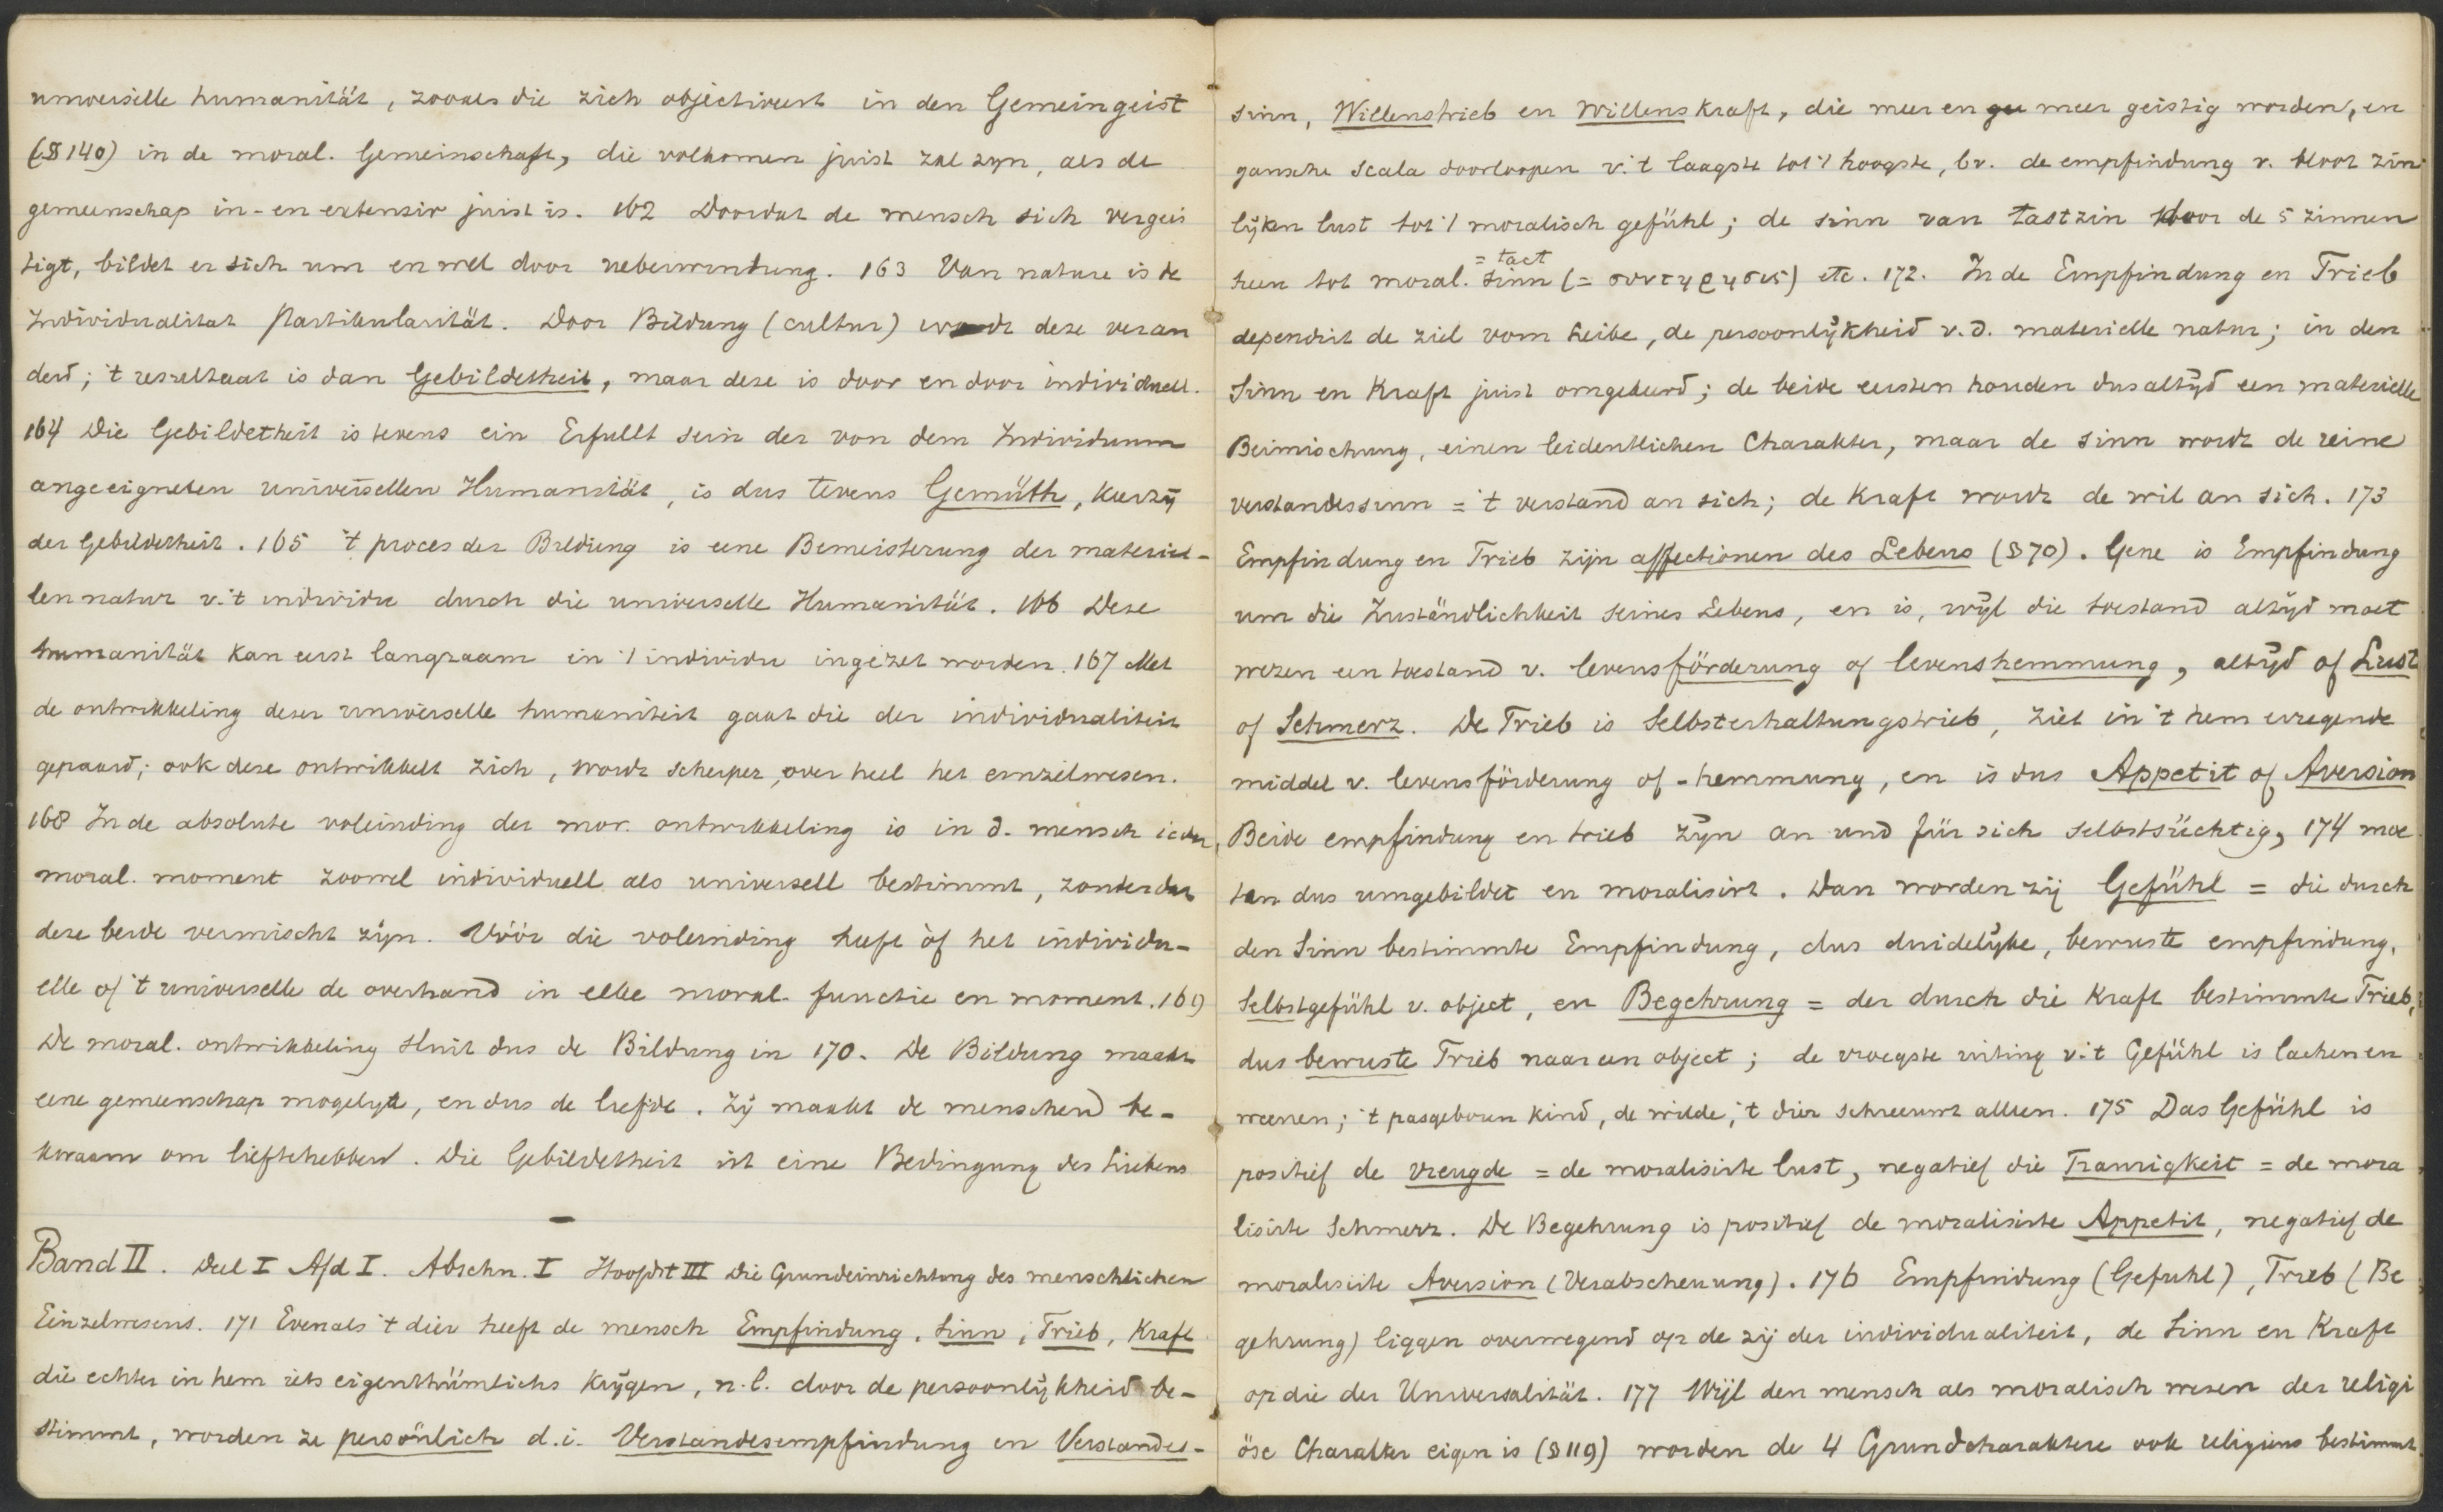 universelle humanität, zooals die zich objectiveert in den Gemeingeist
(§ 140) in de moral. Gemeinschaft, die volkomen juist zal zyn, als de
gemeenschap in- en extensiv juist is. 162 Doordat de mensch sich vergeis
tigt, bildet er sich um en wel door ueberwindung. 163 Van nature is de
Individualitat Partikularität. Door Bildung (cultur) wordt deze veran
derd; 't resultaat is dan Gebildetheit, maar deze is door en door individuell.
164 Die Gebildetheit is tevens ein Erfullt sein der von dem Individuum
angeeigneten universellen Humanität, is dus tevens Gemüth, keerzij
der Gebildetheit. 165 't proces der Bildung is eene Bemeisterung der materiel-
len natur v. 't individu durch die universelle Humanität. 166 Deze
humanität kan eerst langzaam in 't individu ingezet worden. 167 Met
de ontwikkeling dezer universelle humaniteit gaat die der individualiteit
gepaard; ook deze ontwikkelt zich, wordt scherper, over heel het einzelwesen.
168 In de absolute voleinding der mor. ontwikkeling is in d. mensch ieder
moral. moment zoowel individuell als universell bestimmt, zonder dat
deze beide vermischt zijn. Vóór die voleinding heeft òf het individu-
elle of 't universelle de overhand in elke moral. functie en moment. 169
De moral. ontwikkeling sluit dus de Bildung in 170. De Bildung maakt
eene gemeenschap mogelyk, en dus de liefde. Zij maakt de menschen be-
kwaam om lieftehebben. Die Gebildetheit ist eine Bedingung des Liebens
Band II. Deel I Afd I. Abschn. I Hoofdst III Die Grundeinrichtung des menschlichen
Einzelwesens. 171 Evenals 't dier heeft de mensch Empfindung, Sinn, Trieb, Kraft
die echter in hem iets eigenthümlichs krijgen, n.l. door de persoonlijkheid be-
stimmt, worden ze persönlich d.i. Verstandesempfindung en Verstandes-
sinn, Willenstrieb en Willenskraft, die meer en meer geistig worden, en
gansche scala doorloopen v. 't laagste tot 't hoogste, bv. de empfindung v. bloot zin
lijken lust tot 't moralisch gefühl; de sinn van tastzin door de 5 zinnen
= tact
heen tot moral. sinn (= συντηρησις) etc. 172. In de Empfindung en Trieb
dependirt de ziel vom Leibe, de persoonlijkheid v. d. materielle natur; in den
Sinn en Kraft juist omgekeerd; de beide eersten houden dus altyd een materielle
Beimischung, einen leidentlichen Charakter, maar de sinn wordt de reine
verstandessinn = 't verstand an sich; de Kraft wordt de wil an sich. 173
Empfindung en Trieb zijn affectionen des Lebens (§ 70). Gene is Empfindung
um die Zuständlichkeit seines Lebens, en is, wijl die toestand altijd moet
wezen een toestand v. levensförderung of levenshemmung, altijd of Lust
of Schmerz. De Trieb is Selbsterhaltungstrieb, ziet in 't hem erregende
middel v. levensförderung of -hemmung, en is dus Appetit of Aversion
Beide empfindung en trieb zijn an und für sich selbstsüchtig, 174 moe
ten dus umgebildet en moralisirt. Dan worden zij Gefühl = die durch
den Sinn bestimmte Empfindung, dus duidelijke, bewuste empfindung,
Selbstgefühl v. object, en Begehrung = der durch die Kraft bestimmte Trieb,
dus bewuste Trieb naar een object; de vroegste uiting v. 't Gefühl is lachen en
weenen; 't pasgeboren kind, de wilde, 't dier schreeuwt alleen. 175 Das Gefühl is
positief de vreugde = de moralisirte lust, negatief die Traurigkeit = de mora
lisirte Schmerz. De Begehrung is positief de moralisirte Appetit, negatief de
moralisirte Aversion (Verabscheuung). 176 Empfindung (Gefuhl), Trieb (Be
gehrung) liggen overwegend op de zij der individualiteit, de Sinn en Kraft
op die der Universalität. 177 Wijl den mensch als moralisch wezen der religi
öse Charakter eigen is (§ 119) worden de 4 Grundcharaktere ook religieus bestimmt.